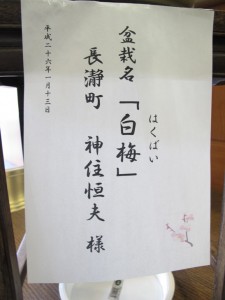 盆栽名「白梅」
はくばい
長瀞町 神住恒夫 様
平成二十六年一月十三日